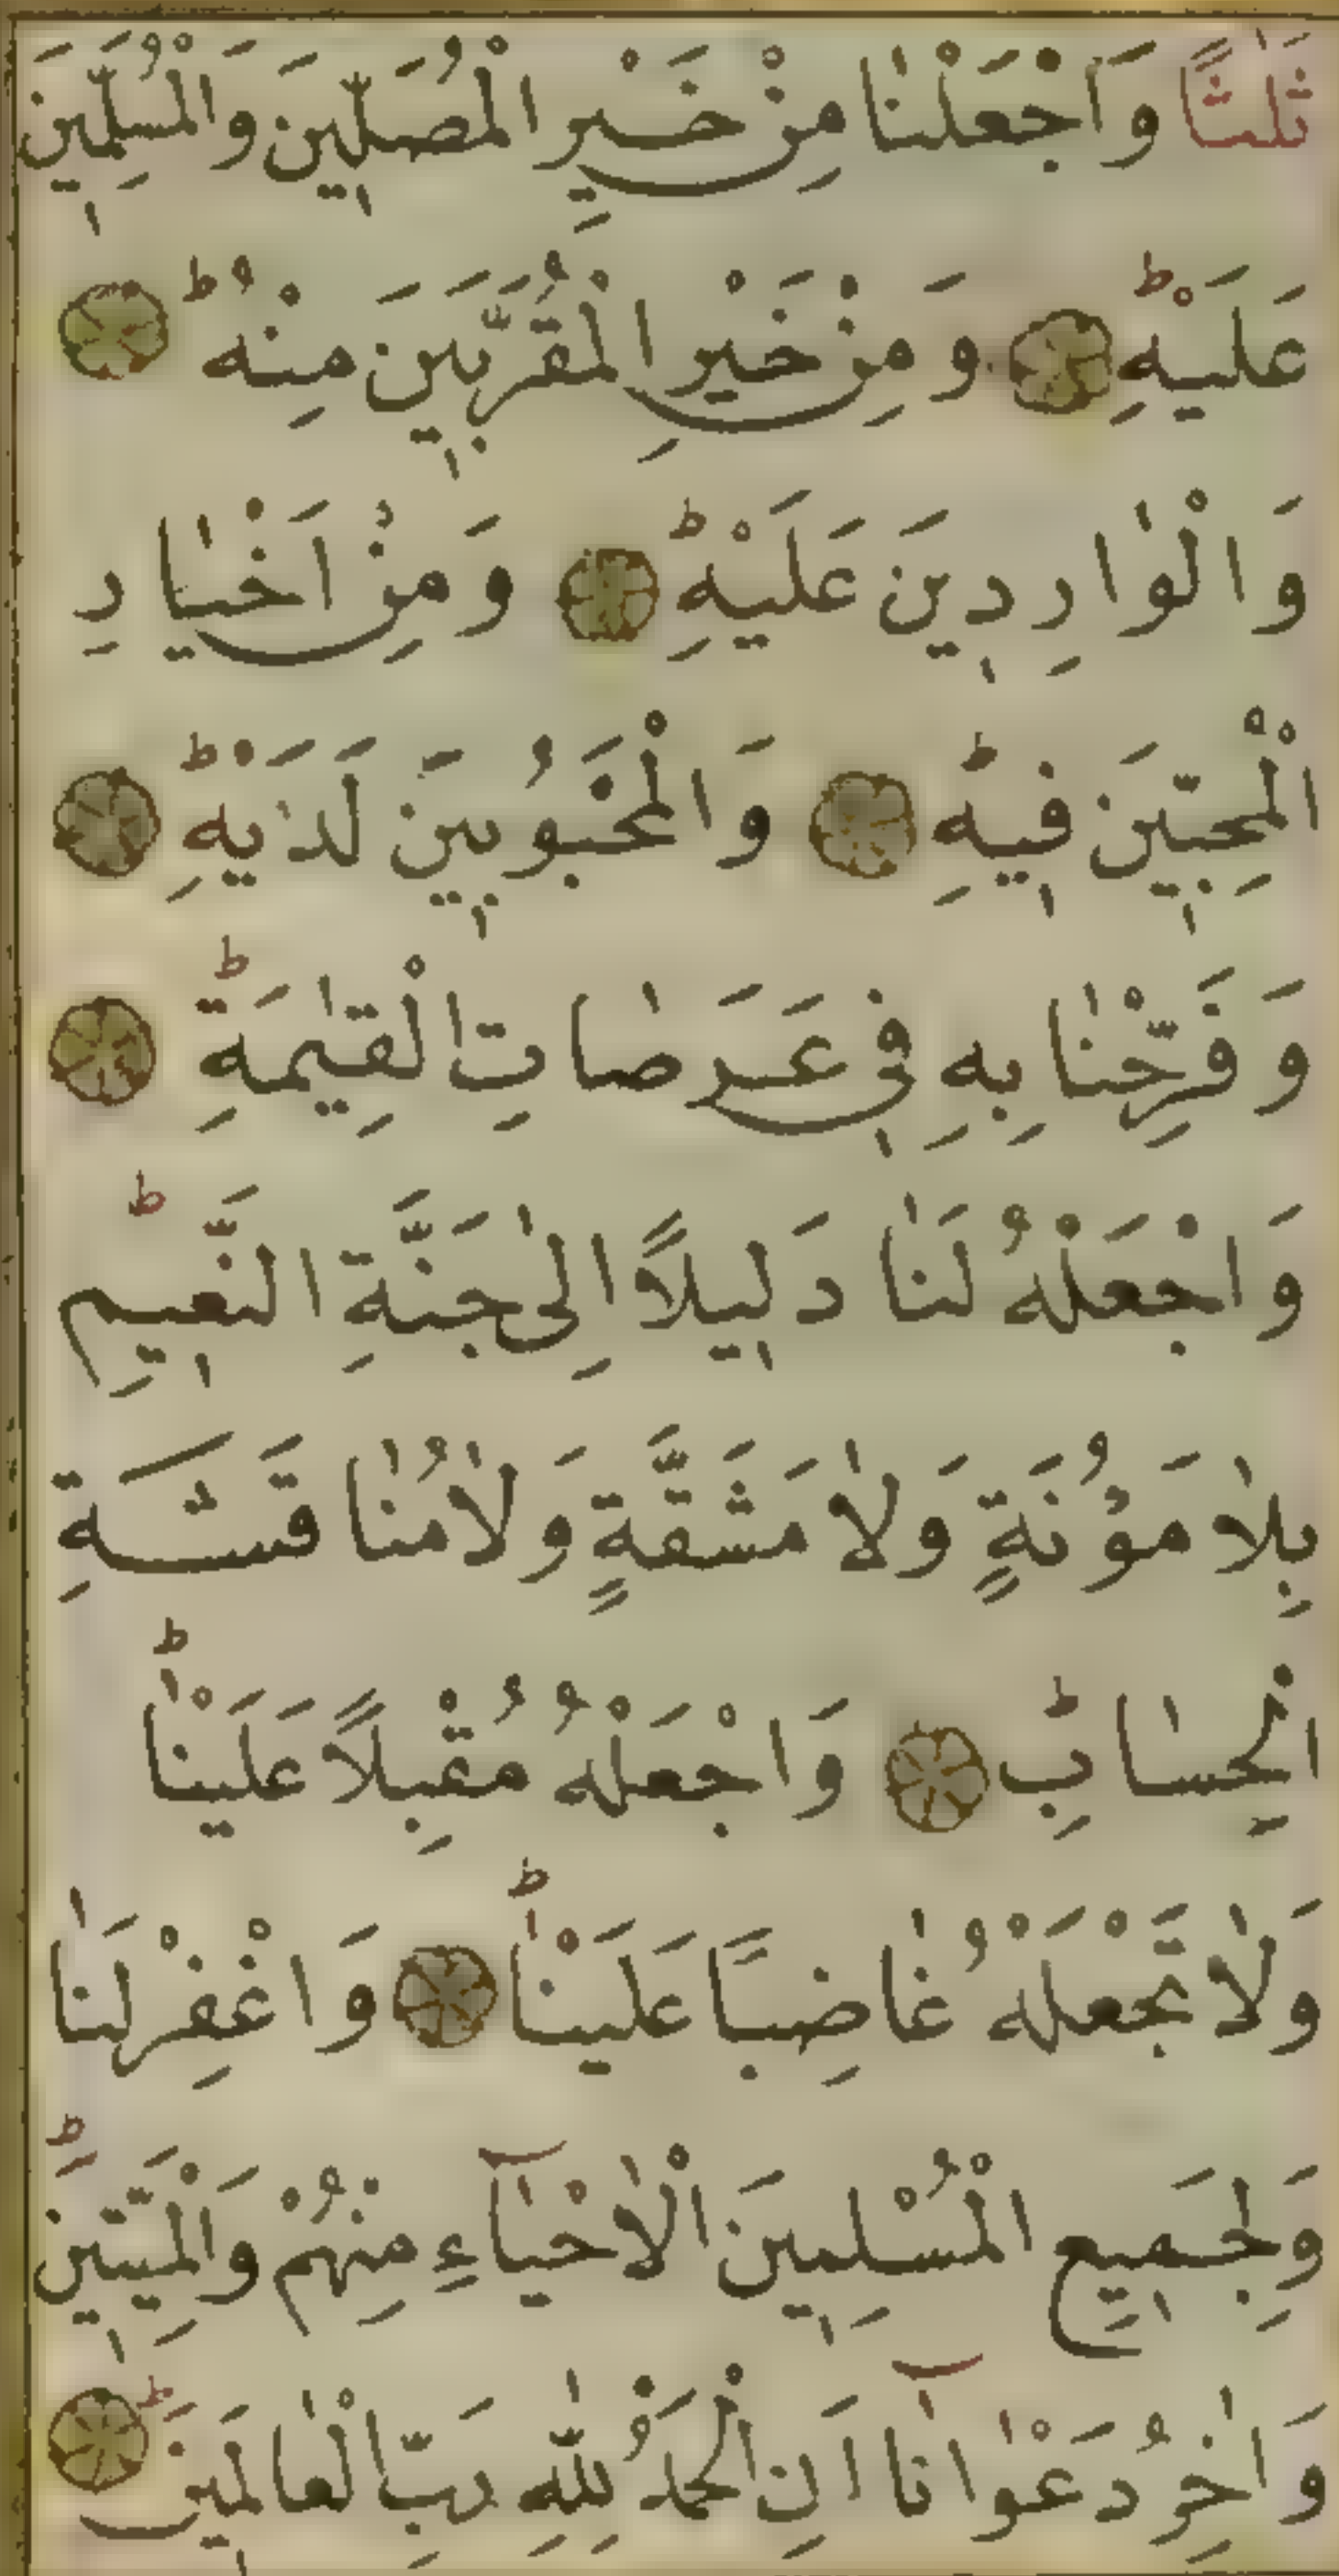 ثَلٰثًا وَاجْعَلْنٰا مِنْ خَيْرِ الْمُصَلِّينَ وَالْمُسَلِّمِينَ
عَلَيْهِ ط وَمِنْ خَيْرِ الْمُقَرَّبِينَ مِنْهُ ط
وَالْوٰارِدِينَ عَلَيْهِ ط وَمِنْ اَخْيٰارِ
الْمُحِبِّينَ فِيهِ ط وَالْمَحْبُوبِينَ لَدَيْهِ ط
وَفَرِّحْنٰا بِهِ فِي عَرَصٰاتِ الْقِيٰمَةِ ط
وَاجْعَلْهُ لَنٰا دَلِيلًا اِلٰى جَنَّةِ النَّعِيمِ ط
بِلٰا مَؤُنَةٍ وَلٰا مَشَقَّةٍ وَلٰا مُنٰاقَشَةِ
الْحِسٰابِ ط وَاجْعَلْهُ مُقْبِلًا عَلَيْنٰا ط
وَلٰا تَجْعَلْهُ غٰاضِبًا عَلَيْنٰا ط وَاغْفِرْلَنٰا
وَلِجَمِيعِ الْمُسْلِمِينَ الْاَحْيٰآءِ مِنْهُمْ وَالْمَيِّتِينَ ط
وَاٰخِرُ دَعْوٰانٰآ اَنِ الْحَمْدُ لِلّٰهِ رَبِّ الْعٰالَمِينَ ط